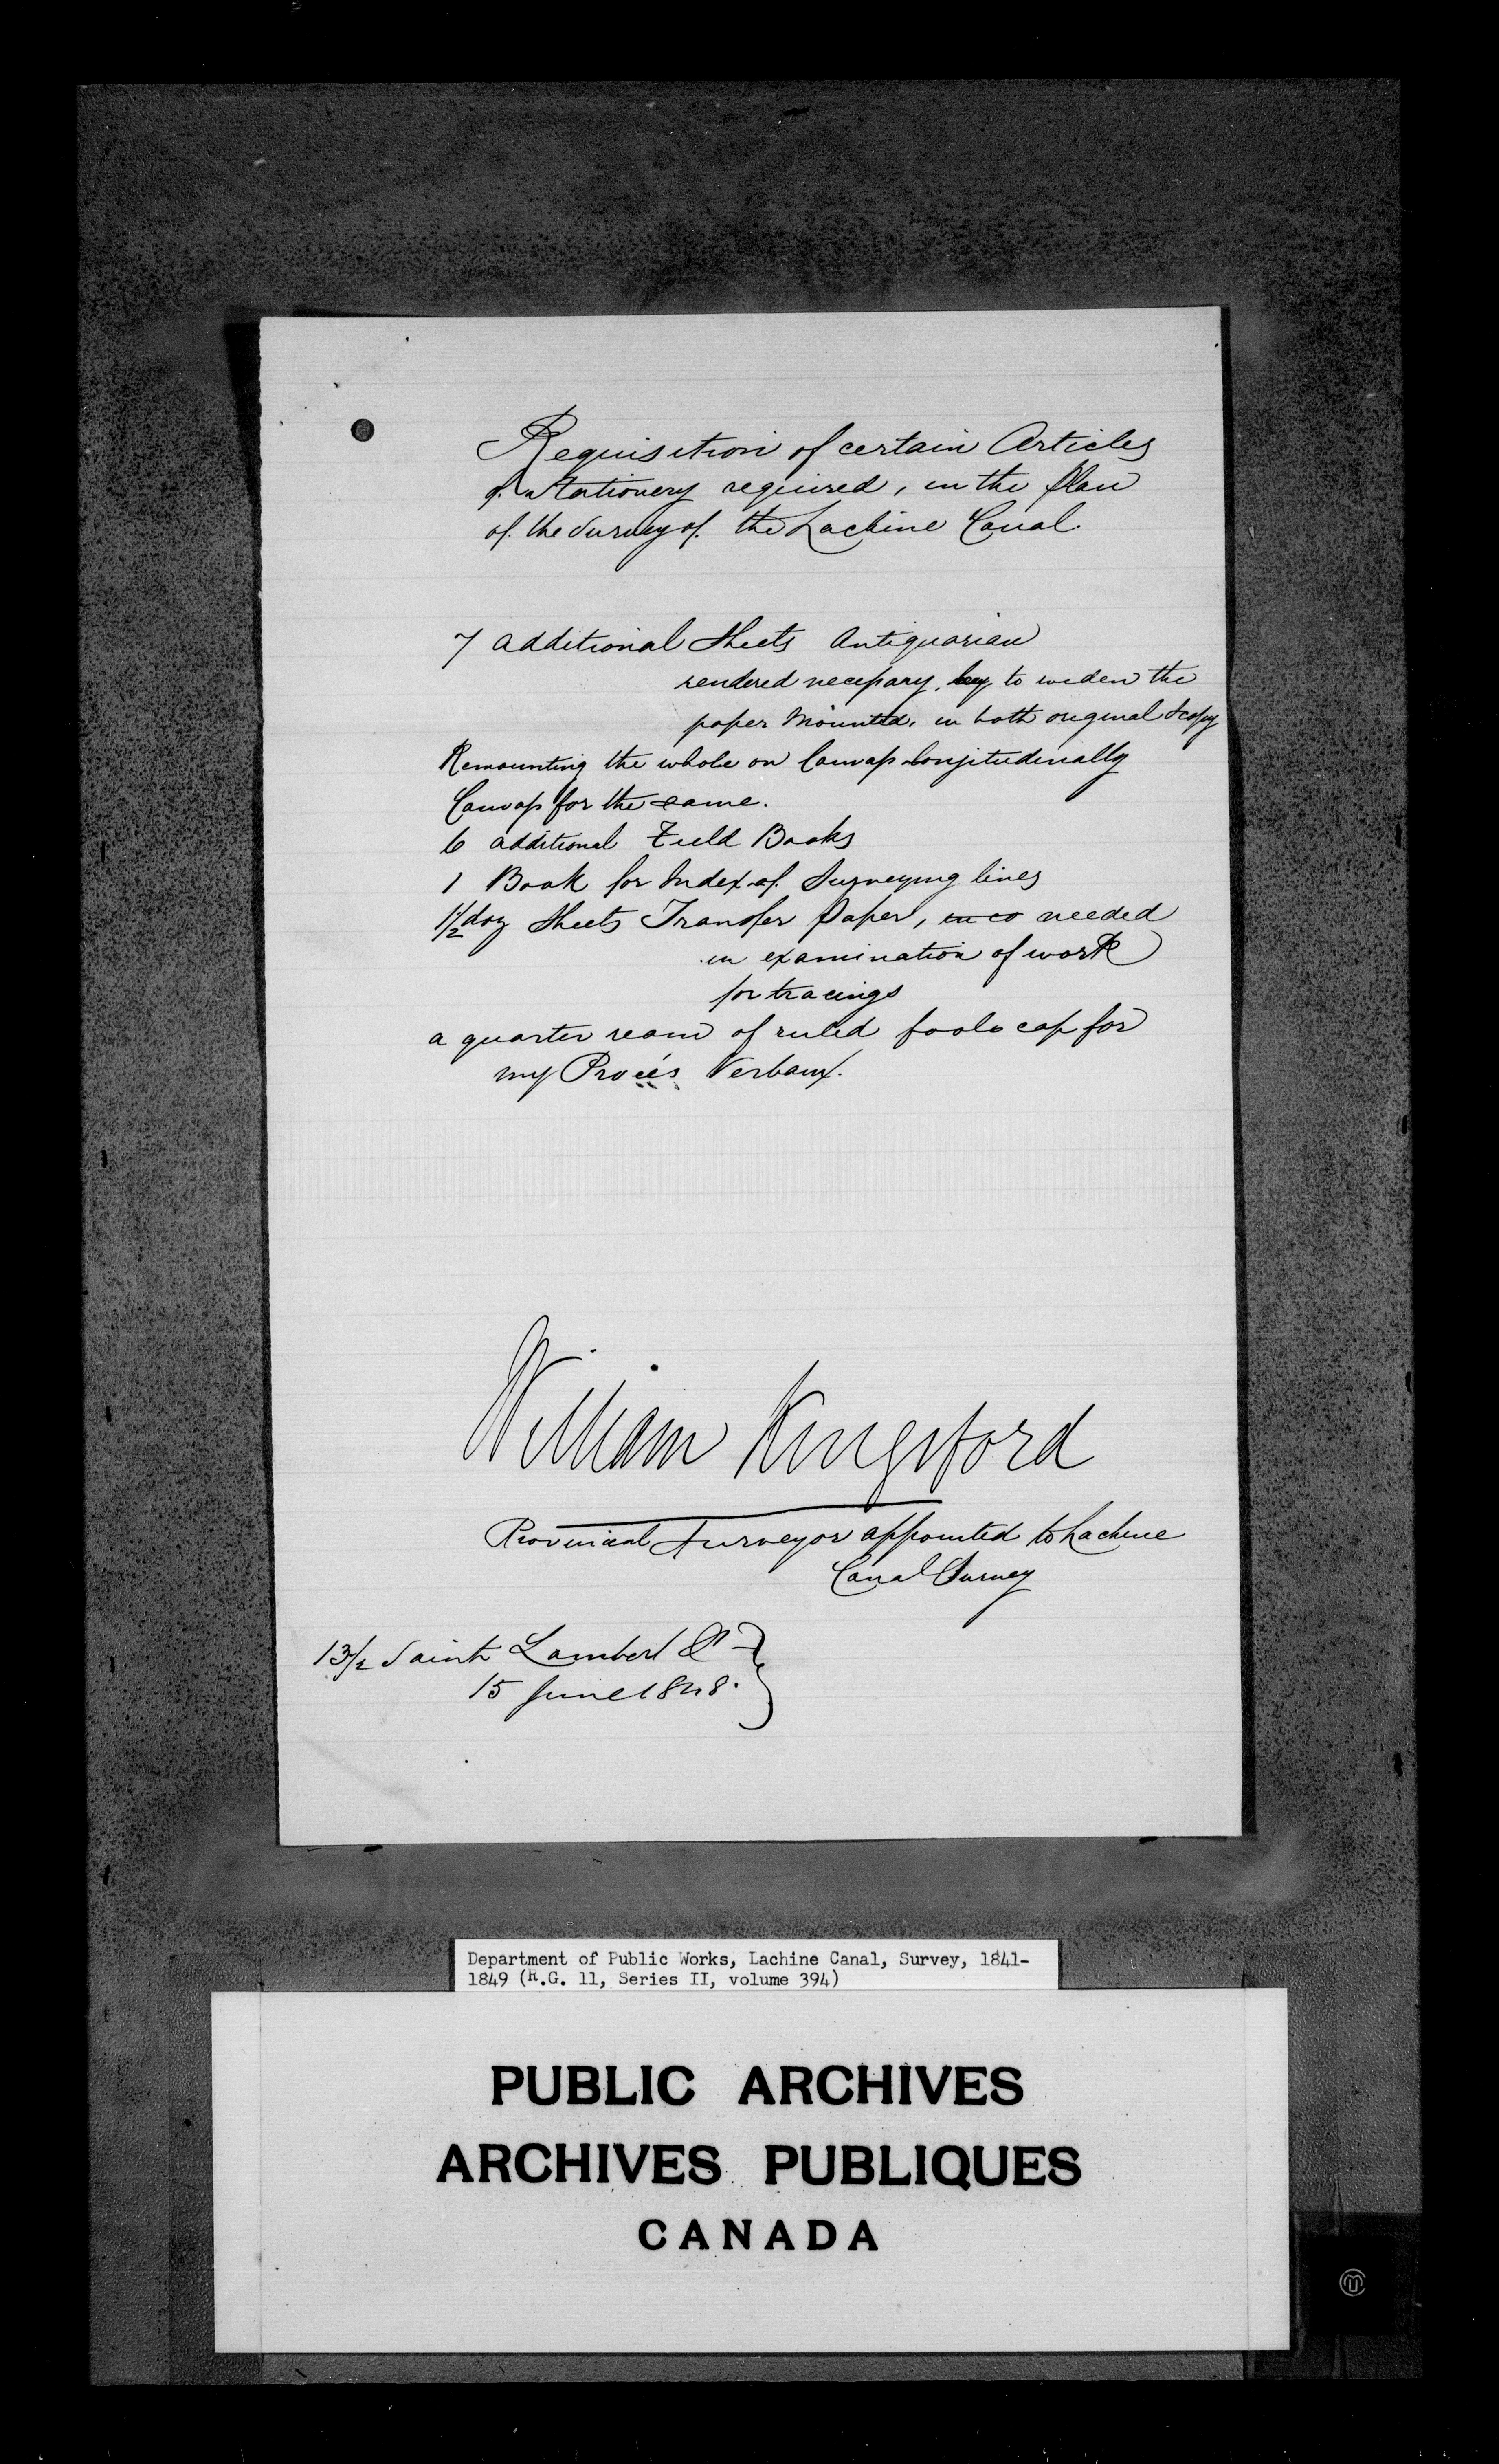 Requisition of certain Articles
of Stationery required, in the Plan
of the Survey of the Lachine Canal
7 additional Sheets Antiquarian
rendered necessary, by to widen the
paper mounted, in both original & copy
Remounting the whole on Canvass longitudinally
Canvass for the same.
6 additional Field Books
1 Book for Index of Surveying lines
1/2 doz Sheets Transfer Paper, needed
in examination of work
for tracings
a quarter ream of ruled foolscap for
my Procés Verbaux.
William Kingsford
Provincial Surveyor appointed to Lachine
Canal Survey
13/2 Saint Lambert St
15 June 1848.
Department of Public Works, Lachine Canal, Survey, 1841-
1849 (R.G. 11, Series II, volume 394)
PUBLIC ARCHIVES
ARCHIVES PUBLIQUES
CANADA